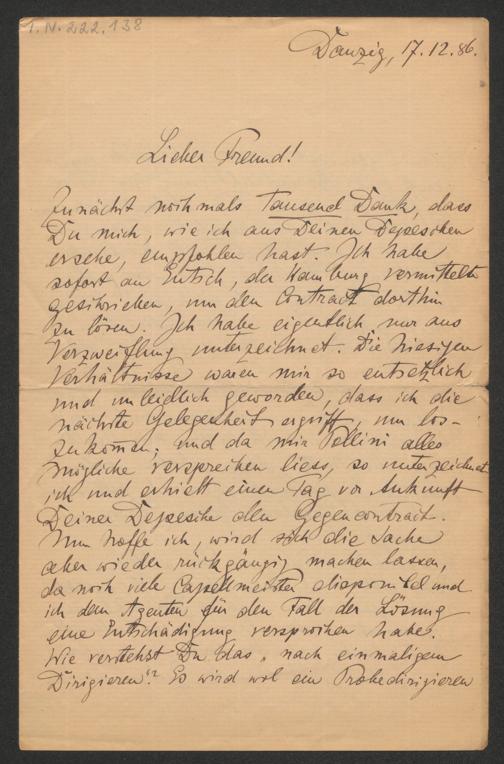 I.N. 222.138
Danzig, 17.12.86.
Lieber Freund!
Zunächst nochmals tausend Dank, dass
Du mich, wie ich aus Deinen Depeschen
ersehe, empfohlen hast. Ich habe
sofort an Entsch, der Hamburg vermittelte
geschrieben, um den Contract dorthin
zu lösen. Ich habe eigentlich nur aus
Verzweiflung unterzeichnet. Die hiesigen
Verhältnisse waren mir so entsetzlich
und unleidlich geworden, dass ich die
nächste Gelegenheit ergriff, um los-
zukom̄en; und da mir Pollini alles
mögliche versprechen liess, so unterzeichnet
ich und erhielt einen Tag vor Ankunft
Deiner Depesche den Gegencontract.
Nun hoffe ich, wird sich die Sache
aber wieder rückgängig machen lassen,
da noch viele Capellmeister disponibel und
ich dem Agenten für den Fall der Lösung
eine Entschädigung versprochen habe.
Wie verstehst Du das „nach einmaligem
Dirigieren“? Es wird wol ein Probedirigieren